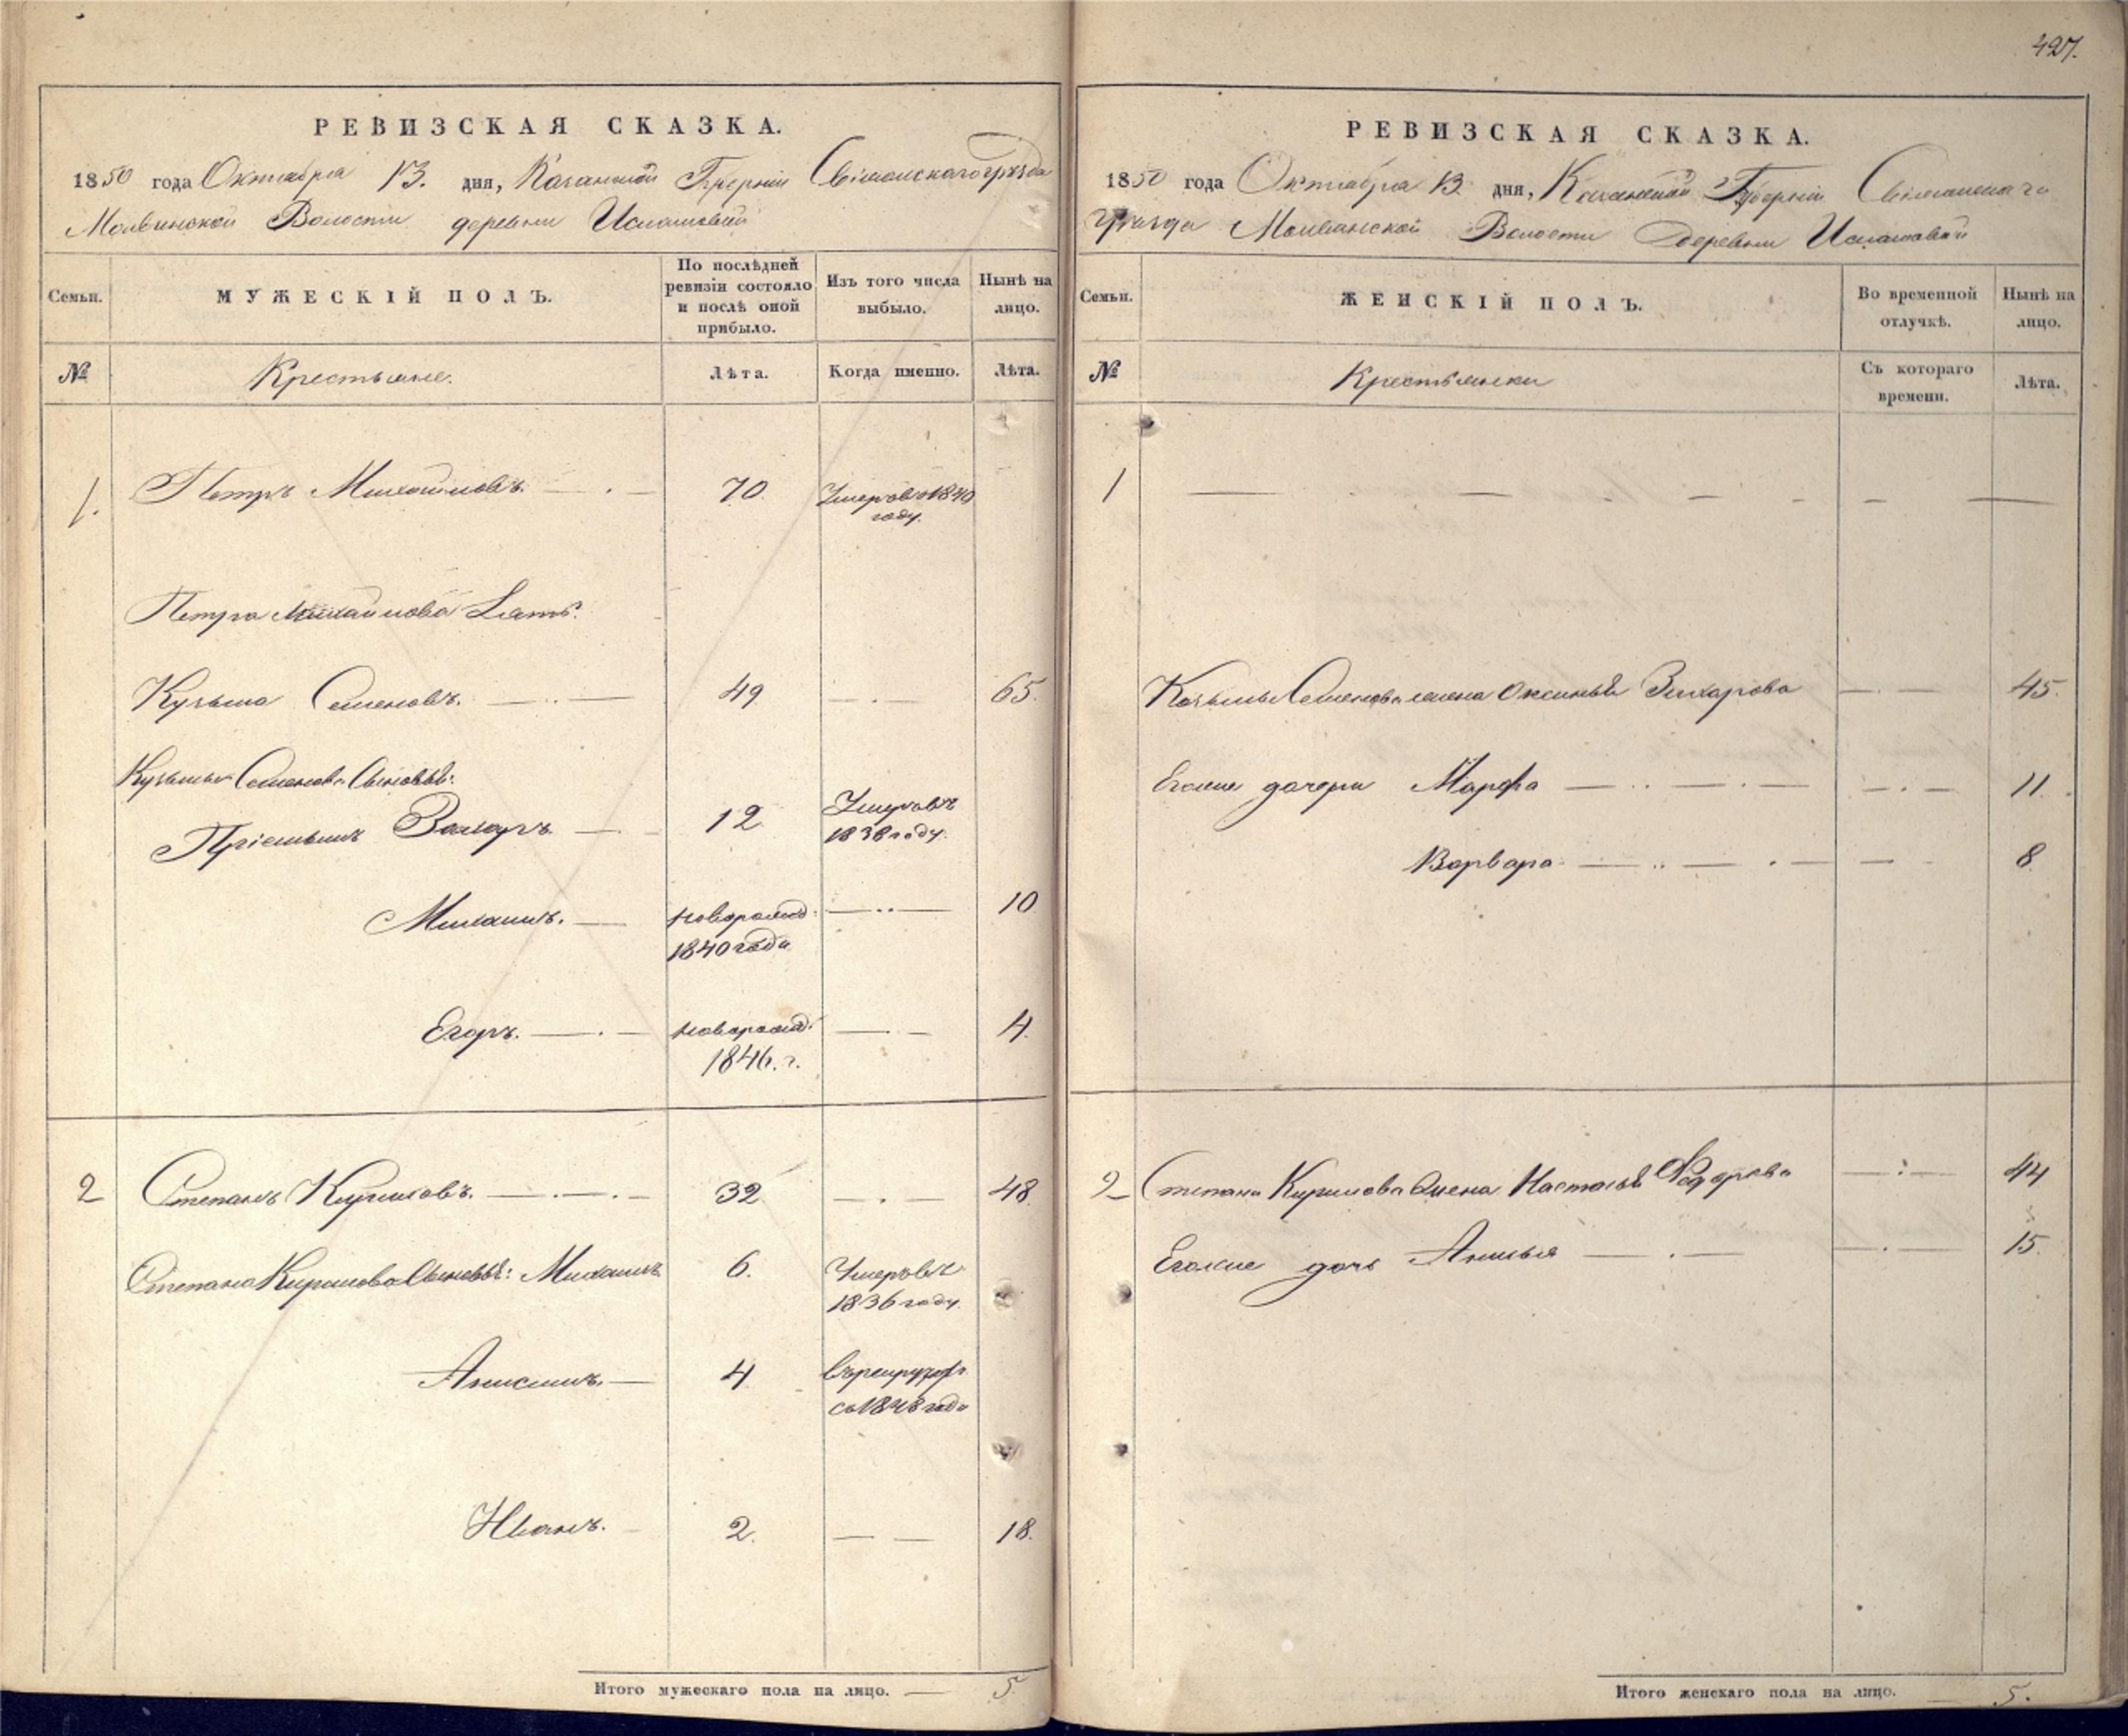 427.
РЕВИЗСКАЯ СКАЗКА.
1850 года Октября 13. дня, Казанской Губерніи Свіяжскаго уѣзда
Молвинской Волости деревни Исланковой
Семьи. МУЖЕСКІЙ ПОЛЪ. По послѣдней ревизіи состояло и послѣ оной прибыло. Изъ того числа выбыло. Нынѣ на лицо.
№ Крестьяне. Лѣта. Когда именно. Лѣта.
1. Петръ Михайловъ. 70. Умеръ въ 1840
году.
Петра Михайлова Зять:
Кузьма Семеновъ. 49 65.
Кузьмы Семенова Сыновья:
Пріемышъ Захаръ. 12. Умеръ въ
1838 году.
Михаилъ. новорожд: 10
1840 года
Егоръ. новорожд: 4.
1846. г.
2 Степанъ Кириловъ. 32 48.
Степана Кирилова Сыновья: Михаилъ 6. Умеръ въ
1836 году.
Анисимъ. 4
съ 1848 года
Иванъ. 2. 18.
Итого мужескаго пола на лицо. 5.
РЕВИЗСКАЯ СКАЗКА.
1850 года Октября 13 дня, Казанской Губерніи Свіяжскаго
Уѣзда Молвинской Волости деревни
Семьи. ЖЕНСКІЙ ПОЛЪ. Во временной отлучкѣ. Нынѣ на лицо.
№ Крестьянки Съ котораго времени. Лѣта.
1
Козьмы Семенова жена Оксинья Захарова 45.
Егожие дочери Марфа 11.
Варвара 8
2 Степана Кирилова жена Настасья Федорова 44
Егожие дочь Анисья 15.
Итого женскаго пола на лицо. 5.